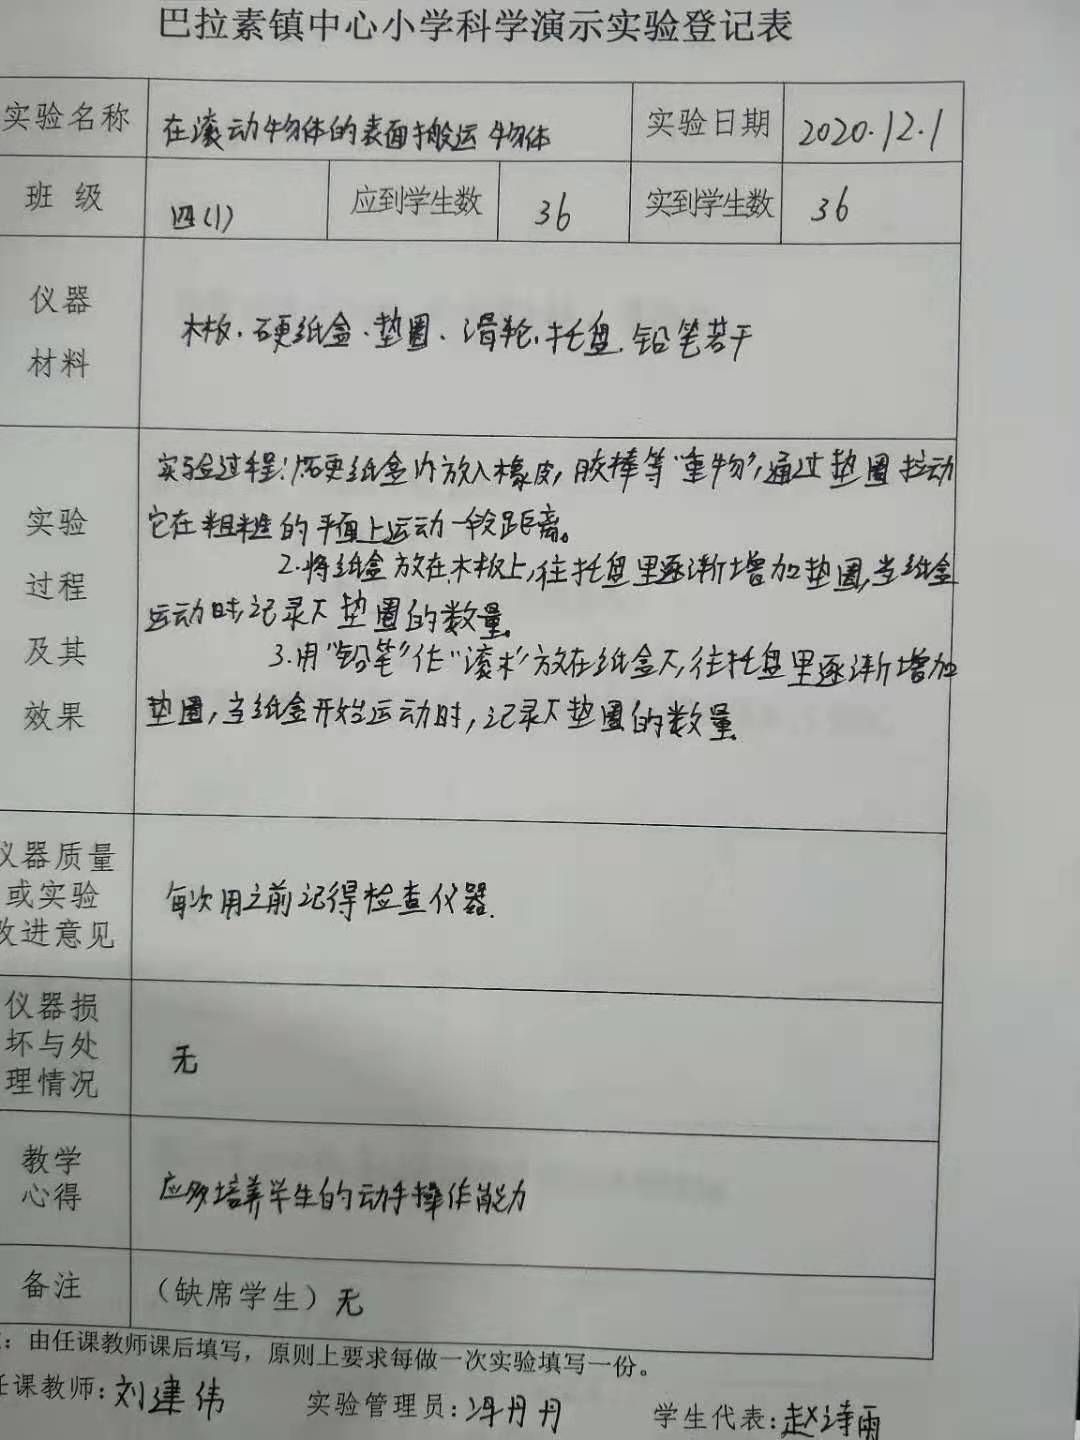 巴拉素镇中心小学科学演示实验登记表
实验名称 在滚动物体的表面搬运物体 实验日期 2020.12.1
班 级 四(1) 应到学生数 36 实到学生数 36
仪器
材料
木板、硬纸盒、垫圈、滑轮、托盘、铅笔若干
实验
过程
及其
效果
实验过程:1.硬纸盒内放入橡皮,胶棒等“重物”,通过垫圈拉动
它在粗糙的平面上运动一段距离。
2.将纸盒放在木板上,往托盘里逐渐增加垫圈,当纸盒
运动时,记录下垫圈的数量。
3.用“铅笔”作“滚木”放在纸盒下,往托盘里逐渐增加
垫圈,当纸盒开始运动时,记录下垫圈的数量。
仪器质量
或实验
改进意见
每次用之前记得检查仪器.
仪器损
坏与处
理情况
无
教学
心得
应多培养学生的动手操作能力
备注 (缺席学生)无
:由任课教师课后填写,原则上要求每做一次实验填写一份。
任课教师:刘建伟 实验管理员:冯丹丹 学生代表:赵诗雨